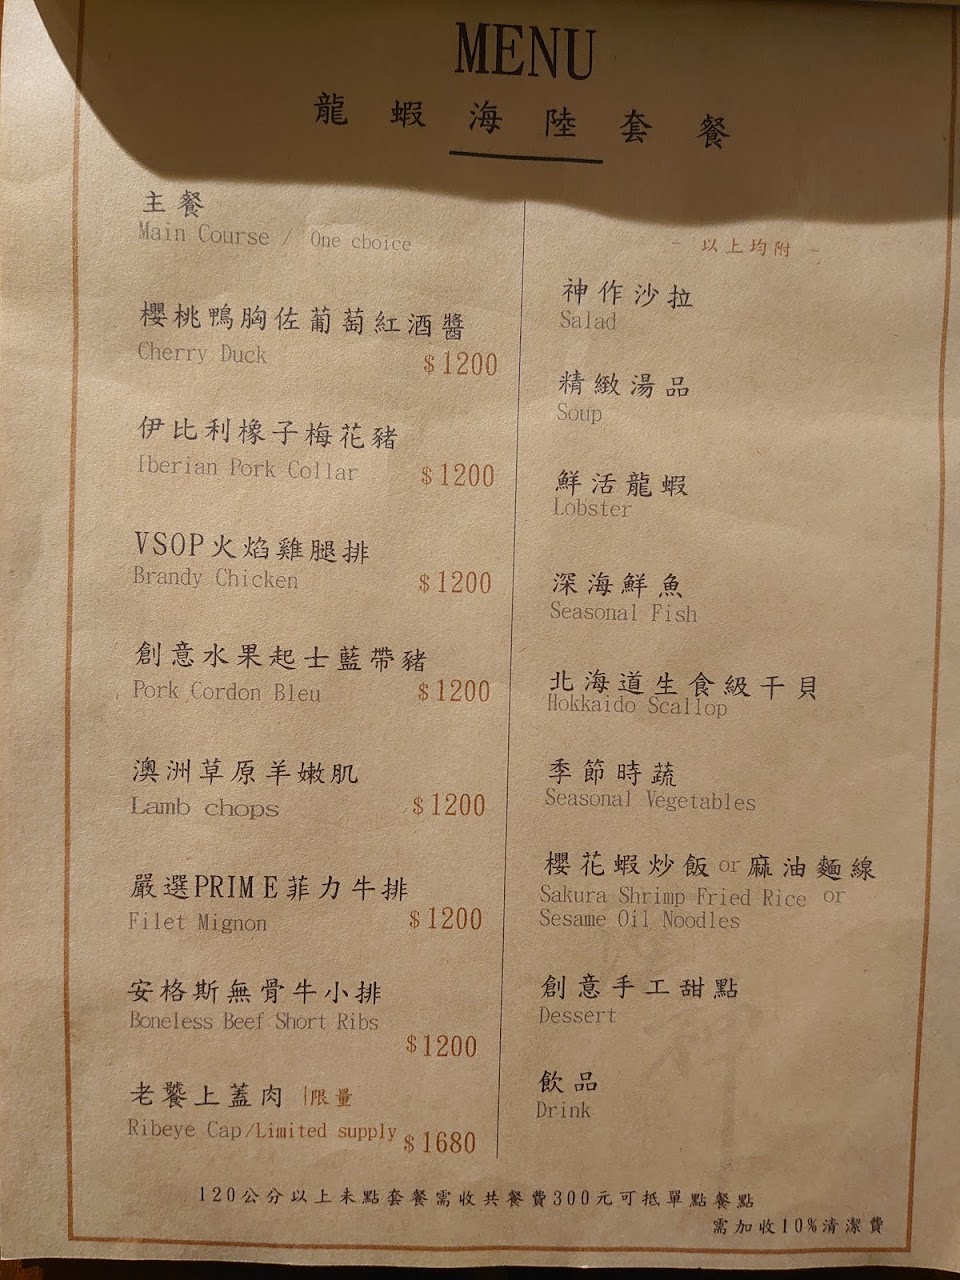 MENU
龍蝦海陸套餐
主餐
Main Course / One choice
櫻桃鴨胸佐葡萄紅酒醬
Cherry Duck
$1200
伊比利橡子梅花豬
Iberian Pork Collar
$1200
VSOP火焰雞腿排
Brandy Chicken
$1200
創意水果起士藍帶豬
Pork Cordon Bleu
$1200
澳洲草原羊嫩肌
Lamb chops
$1200
嚴選PRIME菲力牛排
Filet Mignon
$1200
安格斯無骨牛小排
Boneless Beef Short Ribs
$1200
老饕上蓋肉 |限量
Ribeye Cap/Limited supply
$1680
- 以上均附 -
神作沙拉
Salad
精緻湯品
Soup
鮮活龍蝦
Lobster
深海鮮魚
Seasonal Fish
北海道生食級干貝
Hokkaido Scallop
季節時蔬
Seasonal Vegetables
櫻花蝦炒飯or麻油麵線
Sakura Shrimp Fried Rice or
Sesame Oil Noodles
創意手工甜點
Dessert
飲品
Drink
120公分以上未點套餐需收共餐費300元可抵單點餐點
需加收10%清潔費